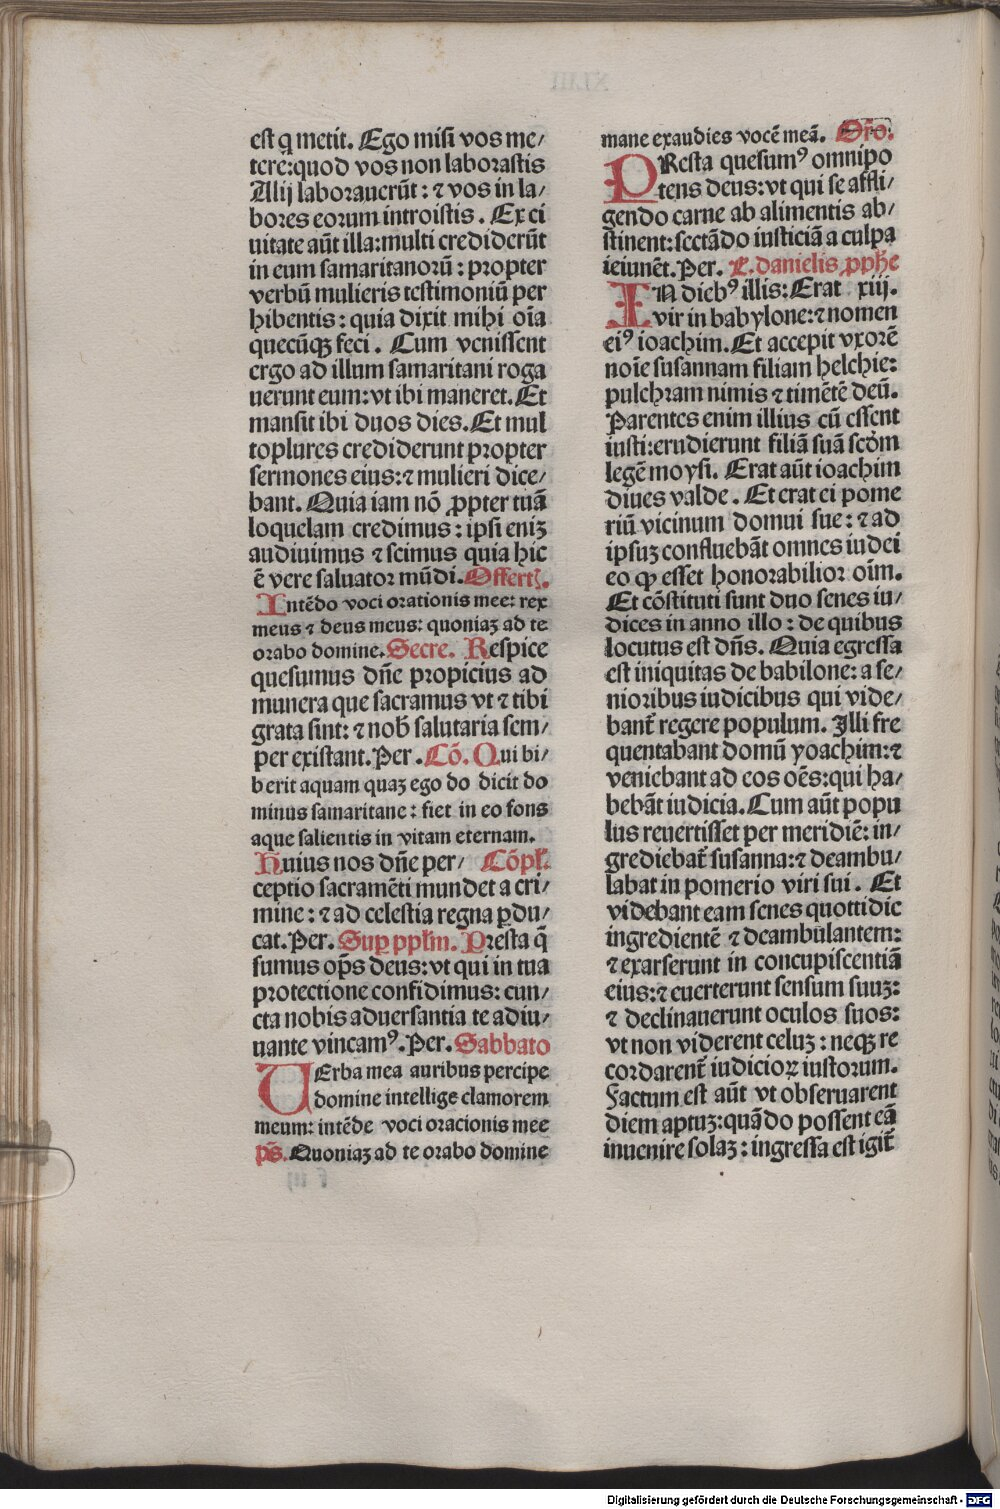 est q̃ metit. Ego misi vos me/
tere: quod vos non laborastis
Alij laborauerũt: ⁊ vos in la/
bores eorum introistis. Ex ci
uitate aũt illa: multi crediderũt
in eum samaritanorũ: propter
verbũ mulieris testimoniũ per
hibentis: quia dixit mihi oĩa
quecũqꝫ feci. Cum venissent
ergo ad illum samaritani roga
uerunt eum: vt ibi maneret. Et
mansit ibi duos dies. Et mul
toplures crediderunt propter
sermones eius: ⁊ mulieri dice/
bant. Quia iam nõ ꝓpter tuã
loquelam credimus: ipsi eniꝫ
audiuimus ⁊ scimus quia hic
ẽ vere saluator mũdi. Offertꝭ.
Intẽdo voci orationis mee: rex
meus ⁊ deus meus: quoniaꝫ ad te
orabo domine. Secre. Respice
quesumus dñe propicius ad
munera que sacramus vt ⁊ tibi
grata sint: ⁊ nob̃ salutaria sem/
per existant. Per. Cõ. Qui bi/
berit aquam quaꝫ ego do dicit do
minus samaritane: fiet in eo fons
aque salientis in vitam eternam.
Huius nos dñe per/ Cõpl̃.
ceptio sacramẽti mundet a cri/
mine: ⁊ ad celestia regna ꝑdu/
cat. Per. Suꝑ ppl̃m. Presta q̃
sumus op̃s deus: vt qui in tua
protectione confidimus: cun/
cta nobis aduersantia te adiu/
uante vincamꝰ. Per. Sabbato
VErba mea auribus percipe
domine intellige clamorem
meum: intẽde voci oracionis mee
p̃s. Quoniaꝫ ad te orabo dominẽ
mane exaudies vocẽ meã. Orõ.
PResta quesumꝰ omnipo
tens deus: vt qui se affli/
gendo carne ab alimentis ab/
stinent: sectãdo iusticiã a culpa
ieiunẽt. Per. L. danielis ꝓph̃e
IN diebꝰ illis: Erat xiij.
vir in babylone: ⁊ nomen
eiꝰ ioachim. Et accepit vxorẽ
noĩe susannam filiam helchie:
pulchram nimis ⁊ timẽtẽ deũ.
Parentes enim illius cũ essent
iusti: erudierunt filiã suã scðm
legẽ moysi. Erat aũt ioachim
diues valde. Et erat ei pome
riũ vicinum domui sue: ⁊ ad
ipsuꝫ confluebãt omnes iudei
eo ꝙ esset honorabilior oĩm.
Et cõstituti sunt duo senes iu/
dices in anno illo: de quibus
locutus est dñs. Quia egressa
est iniquitas de babilone: a se/
nioribus iudicibus qui vide/
bant̃ regere populum. Illi fre
quentabant domũ yoachim: ⁊
veniebant ad eos oẽs: qui ha/
bebãt iudicia. Cum aũt popu
lus reuertisset per meridiẽ: in/
grediebat̃ susanna: ⁊ deambu/
labat in pomerio viri sui. Et
videbant eam senes quottidie
ingredientẽ ⁊ deambulantem:
⁊ exarserunt in concupiscentiã
eius: ⁊ euerterunt sensum suuꝫ:
⁊ declinauerunt oculos suos:
vt non viderent celuꝫ: neqꝫ re
cordarent̃ iudicioꝝ iustorum.
Factum est aũt vt obseruarent
diem aptuꝫ: quãdo possent eã
inuenire solaꝫ: ingressa est igit̃
Digitalisierung gefördert durch die Deutsche Forschungsgemeinschaft - DFG